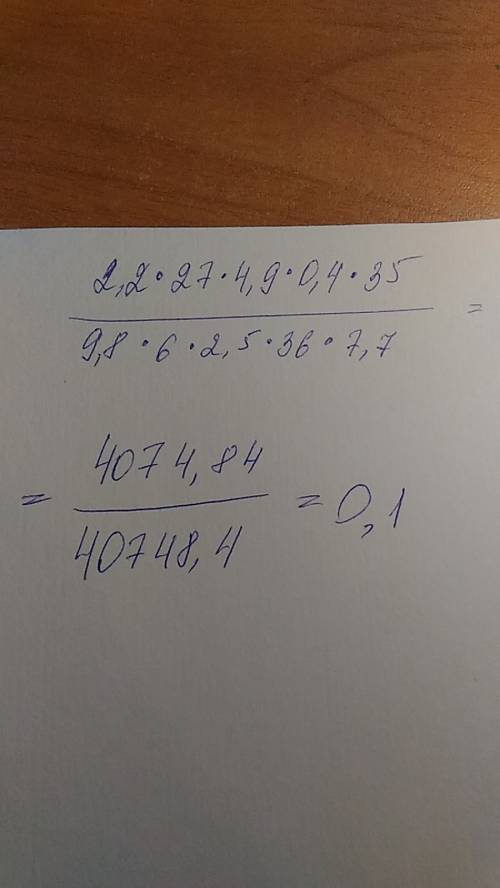 2,2 · 27 · 4,9 · 0,4 · 35
9,8 · 6 · 2,5 · 36 · 7,7 =
= 4074,84
40748,4 = 0,1